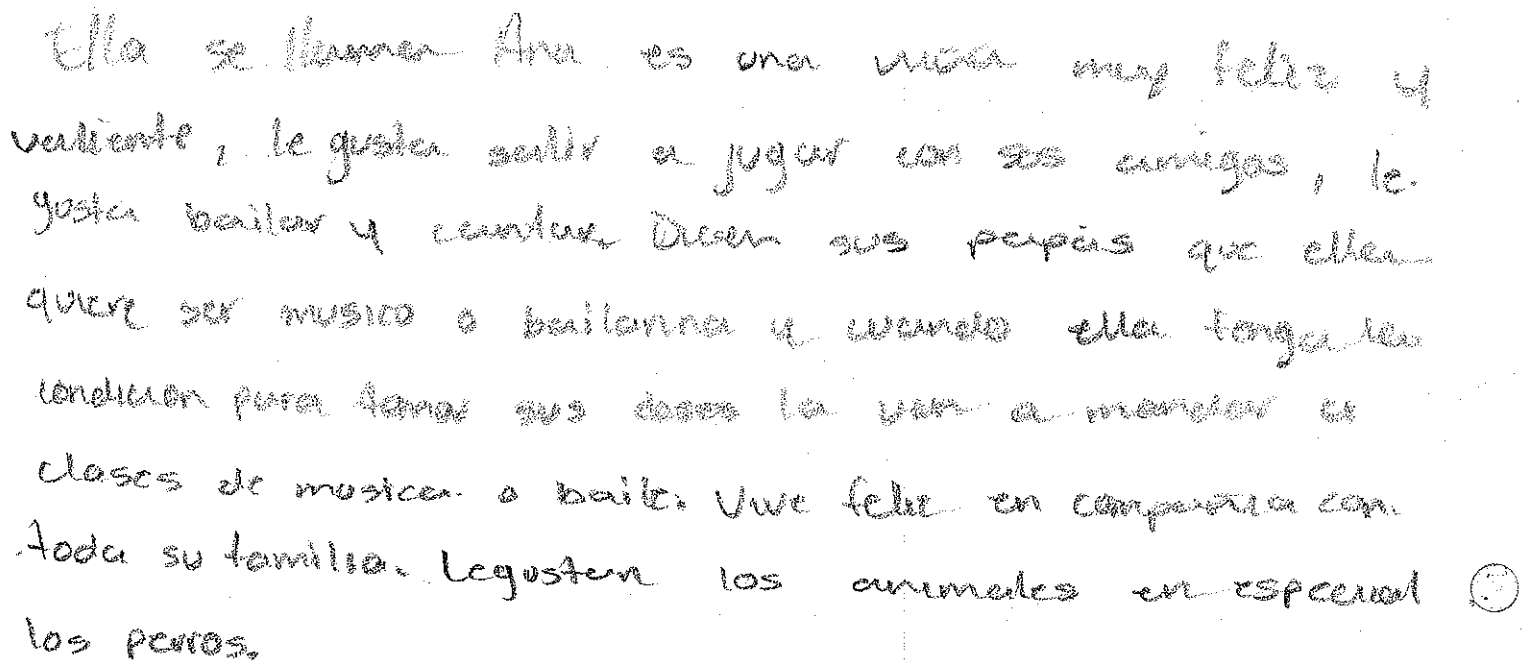 Ella se llama Ana es una niña muy feliz y
valiente, le gusta salir a jugar con sus amigos, le
gusta bailar y cantar. Dicen sus papás que ella
quiere ser musico o bailarina y cuando ella tenga la
condición para tomar sus clases la van a mandar a
clases de musica o baile. Vive feliz en compañia con
toda su familia. Le gustan los animales en especial
los perros.